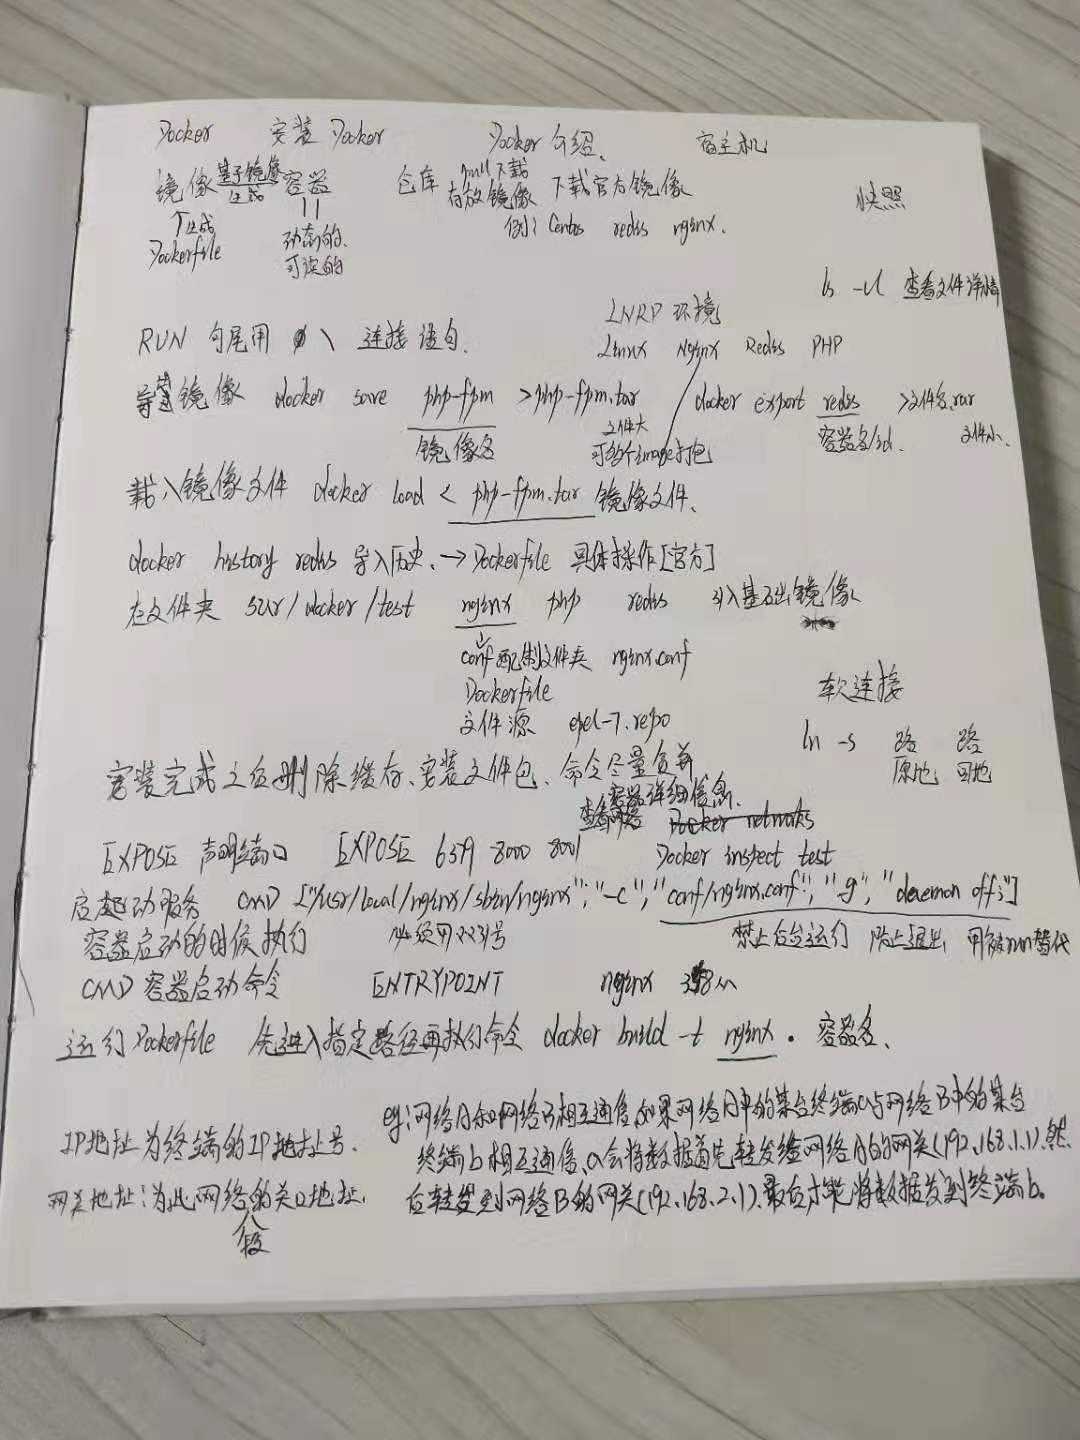 Docker 安装 Docker Docker 介绍、 宿主机
镜像 基于镜像 生成 容器 仓库 pull下载 存放镜像 下载官方镜像 快照
个生成 || 例: Centos redis nginx.
Dockerfile 动态的、
可读的
ls -al 查看文件详情
LNRP 环境
RUN 句尾用 \ 连接语句. Linux Nginx Redis PHP
导镜像 docker save php-fpm >php-fpm.tar docker export redis >文件名.rar
镜像名 文件大 容器名/id. 文件小、
可多个image打包
载入镜像文件 docker load < php-fpm.tar 镜像文件、
docker history redis 导入历史、→Dockerfile 具体操作[官方]
在文件夹 /docker/test nginx php redis 引入基础镜像
conf配制文件夹 nginx.conf
Dockerfile 软连接
文件源 epel-7.repo ln -s 路 路
原地 回地
安装完成之后删除缓存、安装文件包、命令尽量合并
查看 容器详细信息、
Docker networks
EXPOSE 声明端口 EXPOSE 6379 8000 8001 Docker inspect test
启动服务 CMD ["/usr/local/nginx/sbin/nginx";"-c","conf/nginx.conf","-g","daemon off;"]
容器启动的时候执行 必须用双引号 禁止后台运行 防止退出 可被run替代
CMD 容器启动命令 ENTRYPOINT nginx
运行Dockerfile 先进入指定路径再执行命令 docker build -t nginx . 容器名、
eg:网络A和网络B相互通信,如果网络A中的某台终端a与网络B中的某台
IP地址为终端的IP地址号. 终端b相互通信、a会将数据首先转发给网络A的网关(192.168.1.1).然
网关地址:为此网络的关口地址、 后转发到网络B的网关(192.168.2.1).最后才能将数据发到终端b。
段